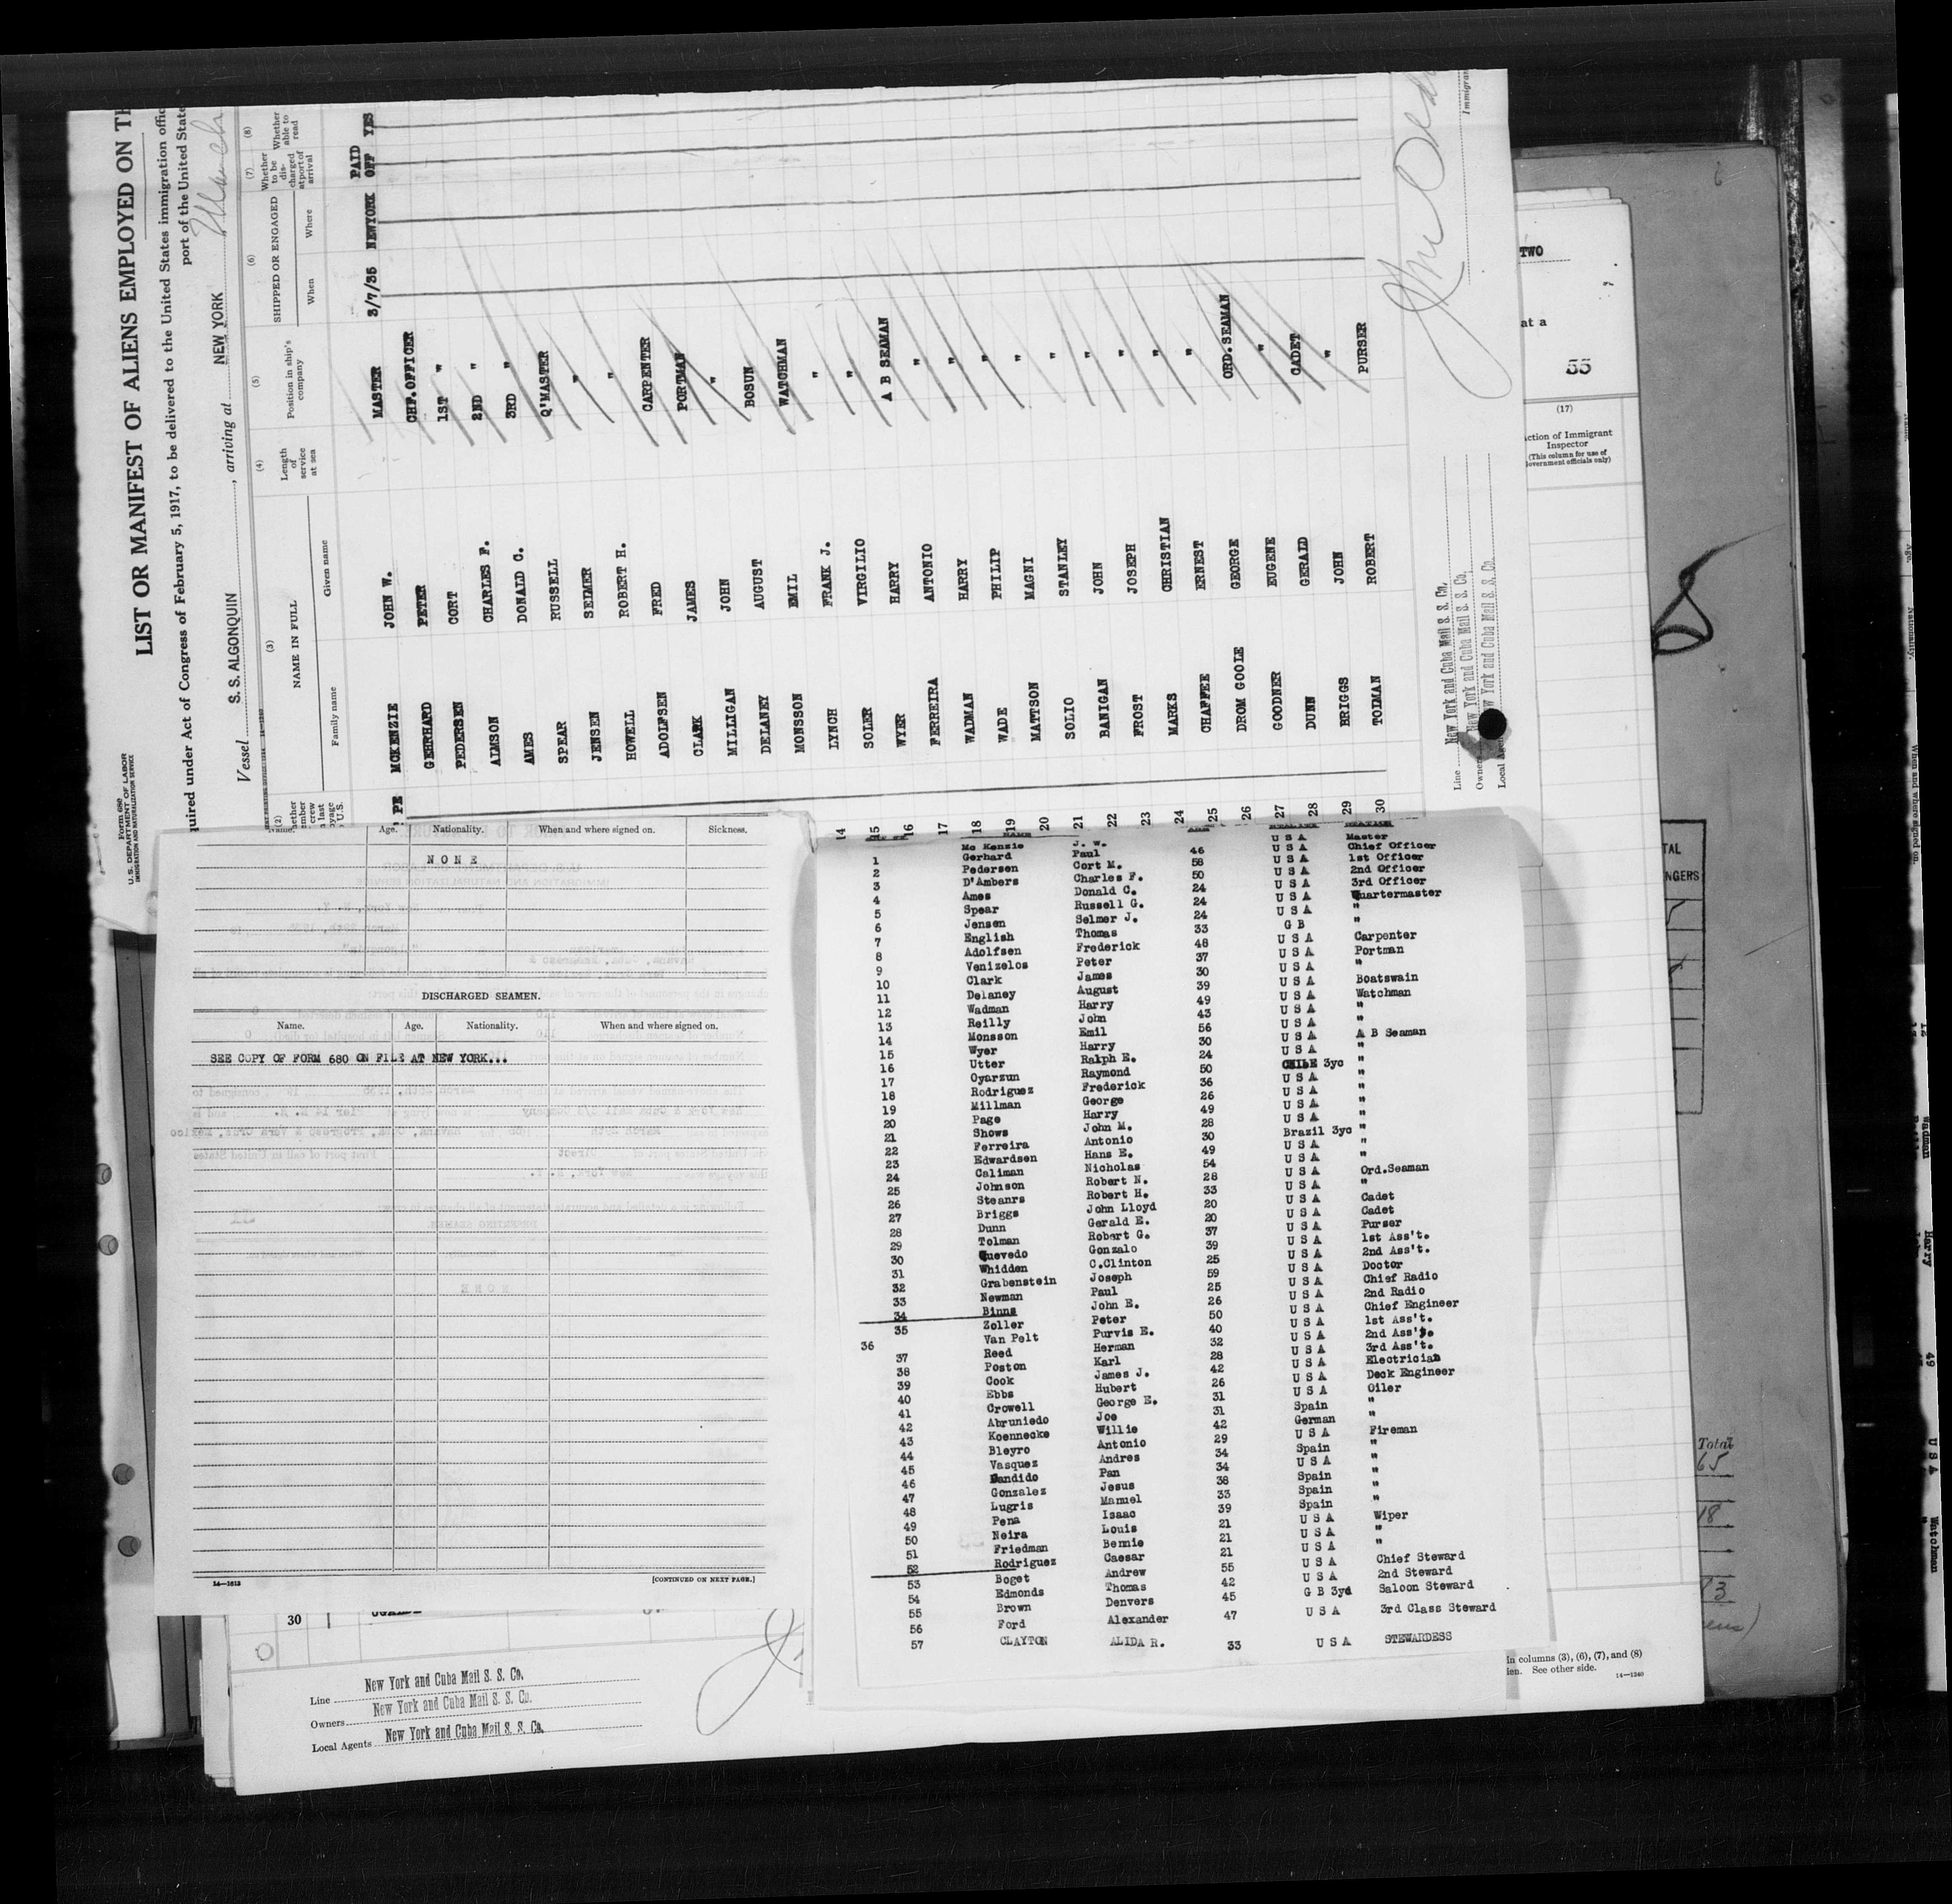 Form 680
U. S. DEPARTMENT OF LABOR
IMMIGRATION AND NATURALIZATION SERVICE
LIST OR MANIFEST OF ALIENS EMPLOYED ON
quired under Act of Congress of February 5, 1917, to be delivered to the United States immigration
port of the United
Vessel S. S. ALGONQUIN, arriving at NEW YORK
(2) (3) (4) (5) (6) (7) (8)
NAME IN FULL
Family name Given name
Length of service at sea
Position in ship's company
SHIPPED OR ENGAGED
When Where
Whether to be discharged at port of arrival
Whether able to read
MCKENZIE JOHN W. MASTER 3/7/35 NEWYORK PAID OFF YES
GEHRHARD PETER CHF.OFFICER
PEDERSEN CORT 1ST "
ALMSON CHARLES F. 2ND "
AMES DONALD C. 3RD "
SPEAR RUSSELL Q'MASTER
JENSEN SELMER "
HOWELL ROBERT H. "
ADOLFSEN FRED CARPENTER
CLARK JAMES PORTMAN
MILLIGAN JOHN "
DELANEY AUGUST BOSUN
MONSSON EMIL WATCHMAN
14 LYNCH FRANK J. "
15 SOLER VIRGILIO "
16 WYER HARRY A B SEAMAN
17 FERREIRA ANTONIO "
18 WADMAN HARRY "
19 WADE PHILIP "
20 MATTSON MAGNI "
21 SOLIO STANLEY "
22 BANIGAN JOHN "
23 FROST JOSEPH "
24 MARKS CHRISTIAN "
25 CHAFFEE ERNEST "
26 DROM GOOLE GEORGE ORD.SEAMAN
27 GOODNER EUGENE "
28 DUNN GERALD CADET
29 BRIGGS JOHN "
30 TOLMAN ROBERT PURSER
Line New York and Cuba Mail S. S. Co.
Owners New York and Cuba Mail S. S. Co.
Local Agents New York and Cuba Mail S. S. Co.
TWO
at a
55
(17)
Action of Immigrant Inspector
(This column for use of Government officials only)
Name. Age. Nationality. When and where signed on. Sickness.
NONE
DISCHARGED SEAMEN.
Name. Age. Nationality. When and where signed on.
SEE COPY OF FORM 680 ON FILE AT NEW YORK...
14—1613
[CONTINUED ON NEXT PAGE.]
Mc Kenzie J. W. U S A Master
1 Gerhard Paul 46 U S A Chief Officer
2 Pedersen Cort M. 58 U S A 1st Officer
3 D'Ambers Charles F. 50 U S A 2nd Officer
4 Ames Donald C. 24 U S A 3rd Officer
5 Spear Russell G. 24 U S A Quartermaster
6 Jensen Selmer J. 24 U S A "
7 English Thomas 33 G B "
8 Adolfsen Frederick 48 U S A Carpenter
9 Venizelos Peter 37 U S A Portman
10 Clark James 30 U S A "
11 Delaney August 39 U S A Boatswain
12 Wadman Harry 49 U S A Watchman
13 Reilly John 43 U S A "
14 Monsson Emil 56 U S A "
15 Wyer Harry 30 U S A A B Seaman
16 Utter Ralph E. 24 U S A "
17 Oyarzun Raymond 50 CHILE 3yc "
18 Rodriguez Frederick 36 U S A "
19 Millman George 26 U S A "
20 Page Harry 49 U S A "
21 Shows John M. 28 U S A "
22 Ferreira Antonio 30 Brazil 3yc "
23 Edwardsen Hans E. 49 U S A "
24 Caliman Nicholas 54 U S A "
25 Johnson Robert N. 28 U S A Ord.Seaman
26 Steanrs Robert H. 33 U S A "
27 Briggs John Lloyd 20 U S A Cadet
28 Dunn Gerald E. 20 U S A Cadet
29 Tolman Robert G. 37 U S A Purser
30 Quevedo Gonzalo 39 U S A 1st Ass't.
31 Whidden C.Clinton 25 U S A 2nd Ass't.
32 Grabenstein Joseph 59 U S A Doctor
33 Newman Paul 25 U S A Chief Radio
34 Binns John E. 26 U S A 2nd Radio
35 Zoller Peter 50 U S A Chief Engineer
36 Van Pelt Purvis E. 40 U S A 1st Ass't.
37 Reed Herman 32 U S A 2nd Ass't.
38 Poston Karl 28 U S A 3rd Ass't.
39 Cook James J. 42 U S A Electrician
40 Ebbs Hubert 26 U S A Deck Engineer
41 Crowell George E. 31 U S A Oiler
42 Abruniedo Joe 31 Spain "
43 Koennecke Willie 42 German "
44 Bleyro Antonio 29 U S A Fireman
45 Vasquez Andres 34 Spain "
46 Candido Pan 34 U S A "
47 Gonzalez Jesus 38 Spain "
48 Lugris Manuel 33 Spain "
49 Pena Isaac 39 Spain "
50 Neira Louis 21 U S A Wiper
51 Friedman Bennie 21 U S A "
52 Rodriguez Caesar 21 U S A "
53 Boget Andrew 55 U S A Chief Steward
54 Edmonds Thomas 42 U S A 2nd Steward
55 Brown Denvers 45 G B 3yd Saloon Steward
56 Ford Alexander 47 U S A 3rd Class Steward
57 CLAYTON ALIDA R. 33 U S A STEWARDESS
30
Line New York and Cuba Mail S. S. Co.
Owners New York and Cuba Mail S. S. Co.
Local Agents New York and Cuba Mail S. S. Co.
in columns (3), (6), (7), and (8)
See other side.
14—1240
Total
65
18
13